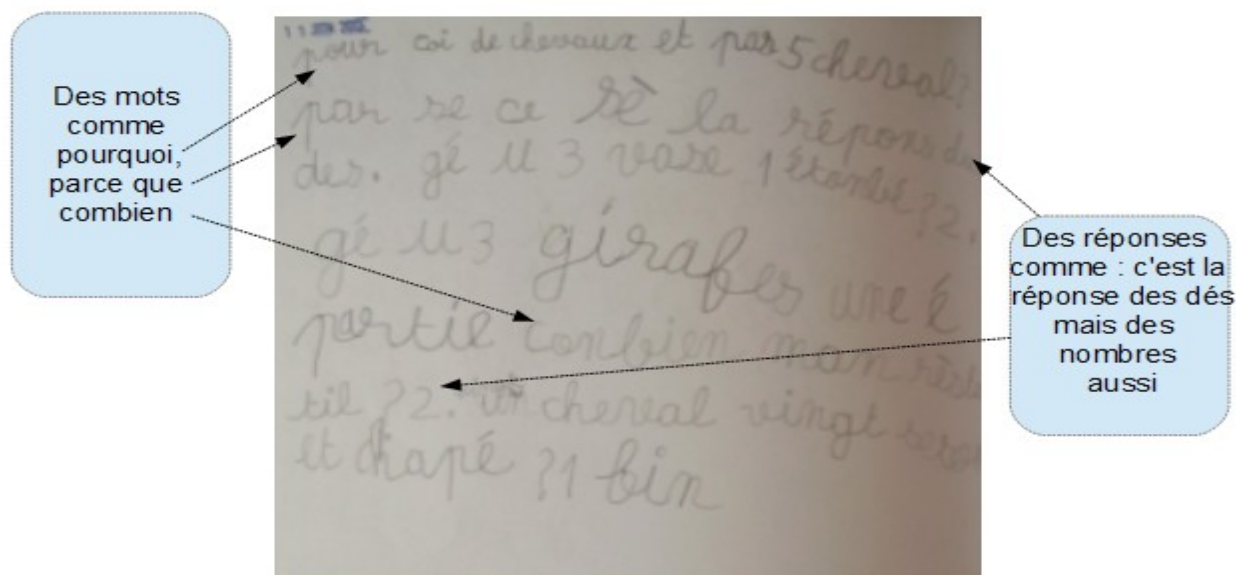 Des mots
comme
pourquoi,
parce que
combien
pour coi de chevaux et pas 5 cheval?
par se ce sè la répons de
des. gé u 3 vase 1 étonbé ? 2.
gé u 3 girafes une é
partie conbien man rèste
til ? 2. cheval vingt
et chapé ? 1 bin
Des réponses
comme : c'est la
réponse des dés
mais des
nombres
aussi